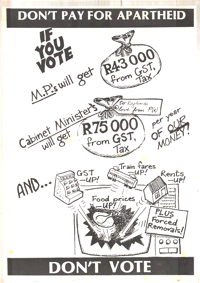 DON'T PAY FOR APARTHEID
IF
YOU
VOTE
M.P.'s will get
R43 000
from GST,
Tax
Cabinet Ministers
will get
R75 000
from GST,
Tax
per year
of OUR
MONEY!
AND...
GST
-UP!
Train fares
-UP!
Rents
-UP!
Food prices
-UP!
PLUS
Forced
Removals!
DON'T VOTE